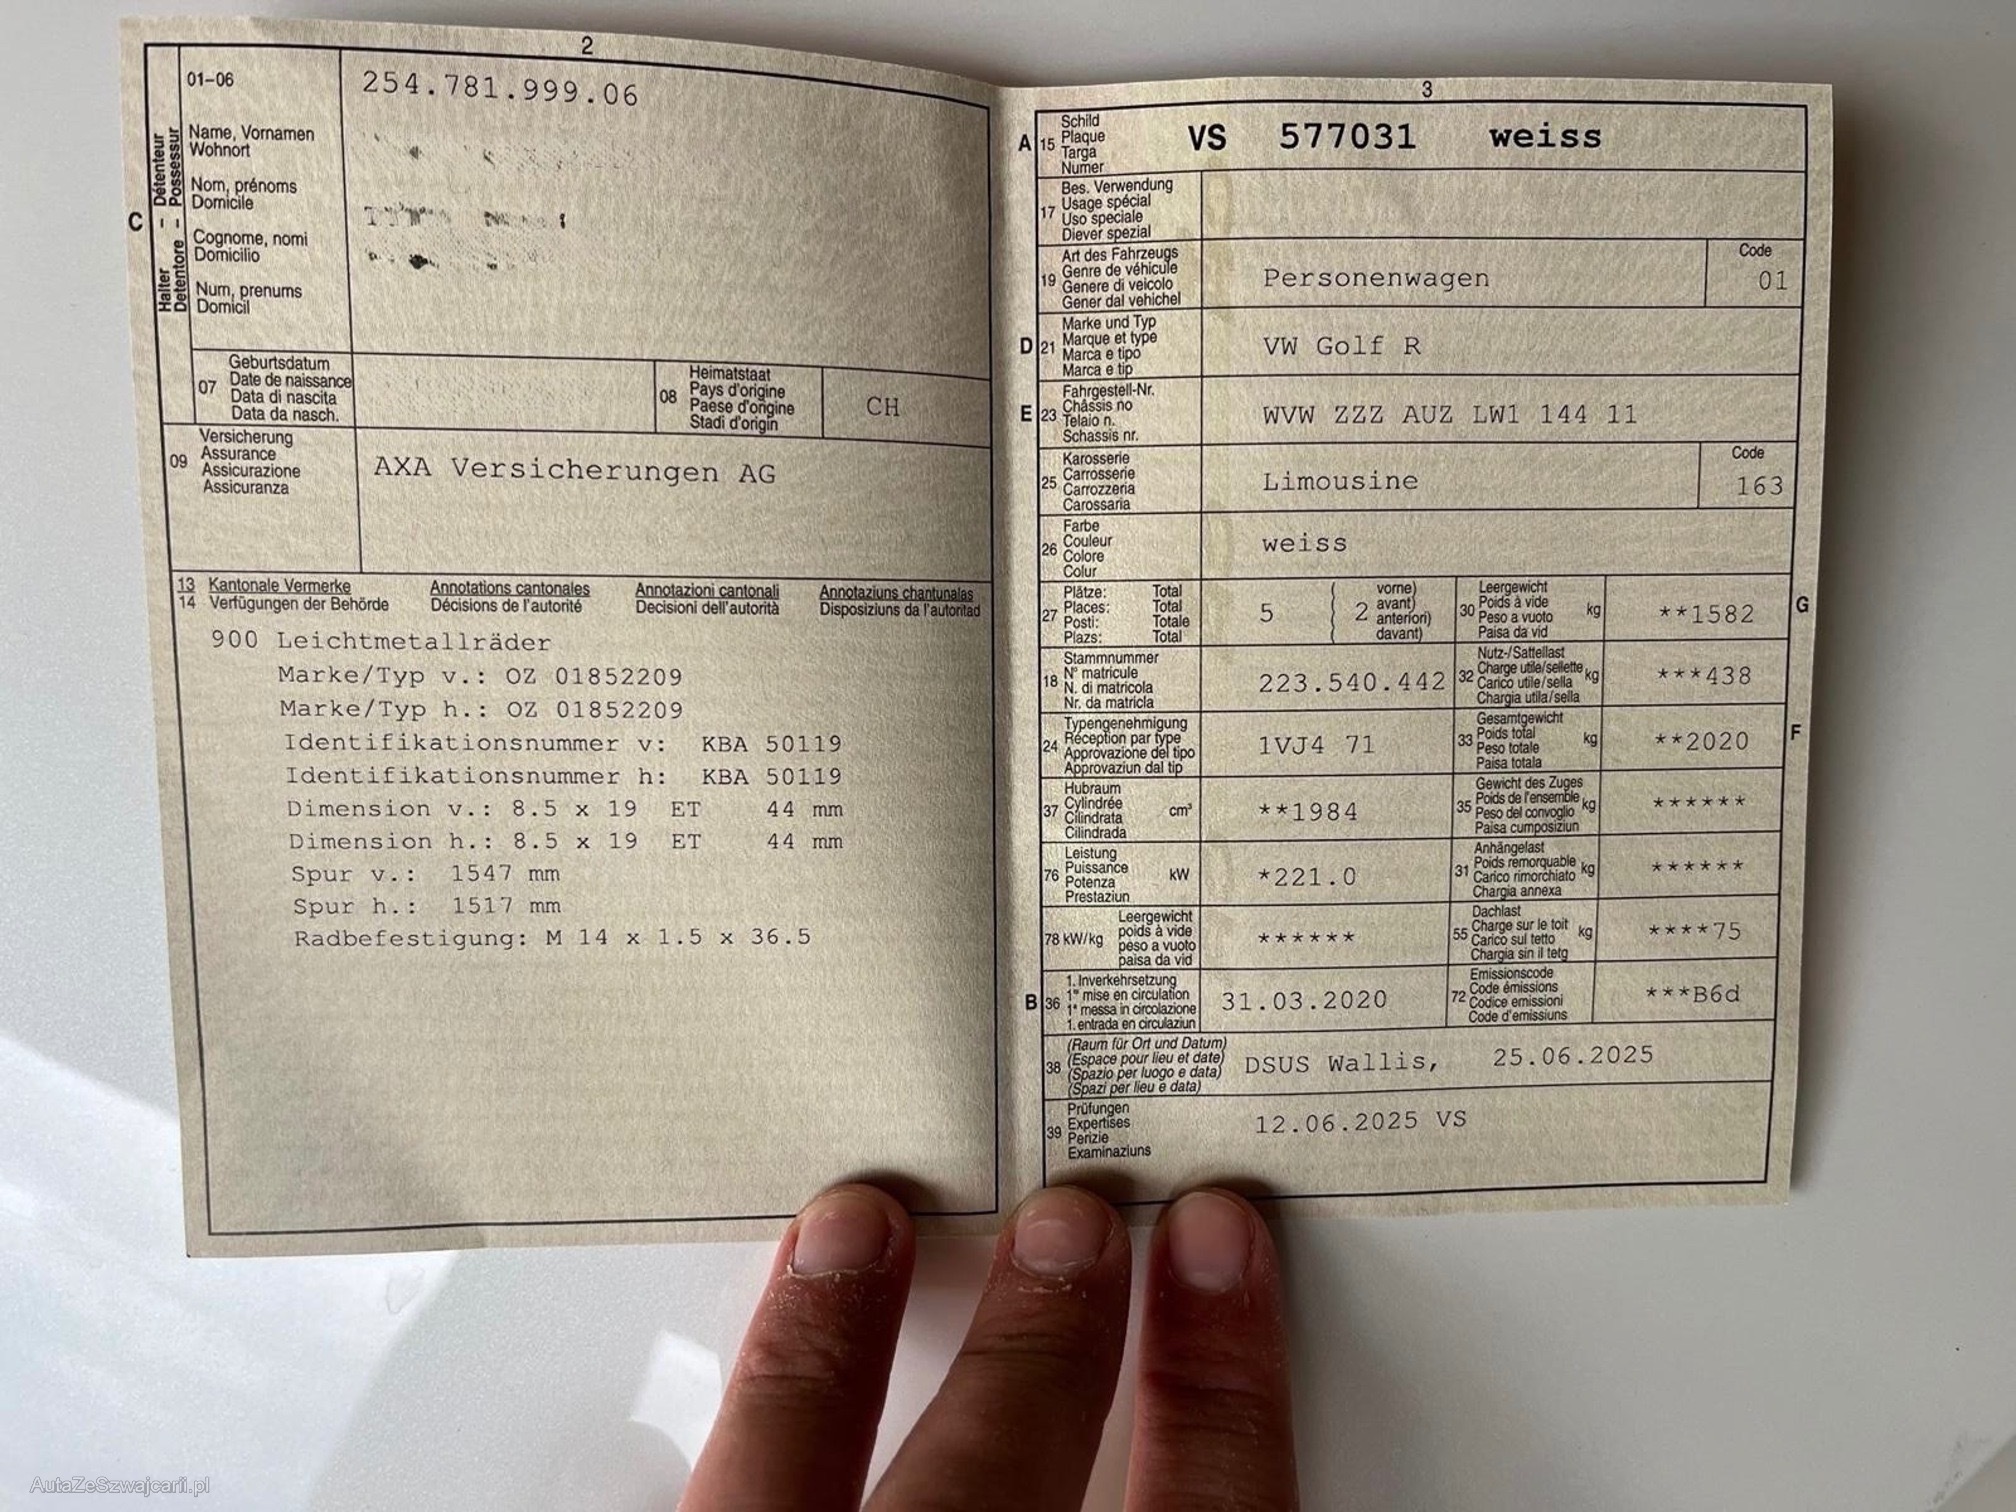 2
01-06
254.781.999.06
C
Halter - Détenteur
Detentore - Possessur
Name, Vornamen
Wohnort
Nom, prénoms
Domicile
Cognome, nomi
Domicilio
Num, prenums
Domicil
07
Geburtsdatum
Date de naissance
Data di nascita
Data da nasch.
08
Heimatstaat
Pays d'origine
Paese d'origine
Stadi d'origin
CH
09
Versicherung
Assurance
Assicurazione
Assicuranza
AXA Versicherungen AG
13 Kantonale Vermerke Annotations cantonales Annotazioni cantonali Annotaziuns chantunalas
14 Verfügungen der Behörde Décisions de l'autorité Decisioni dell'autorità Disposiziuns da l'autoritad
900 Leichtmetallräder
Marke/Typ v.: OZ 01852209
Marke/Typ h.: OZ 01852209
Identifikationsnummer v: KBA 50119
Identifikationsnummer h: KBA 50119
Dimension v.: 8.5 x 19 ET 44 mm
Dimension h.: 8.5 x 19 ET 44 mm
Spur v.: 1547 mm
Spur h.: 1517 mm
Radbefestigung: M 14 x 1.5 x 36.5
3
A 15
Schild
Plaque
Targa
Numer
VS 577031 weiss
17
Bes. Verwendung
Usage spécial
Uso speciale
Diever spezial
19
Art des Fahrzeugs
Genre de véhicule
Genere di veicolo
Gener dal vehichel
Personenwagen
Code
01
D 21
Marke und Typ
Marque et type
Marca e tipo
Marca e tip
VW Golf R
E 23
Fahrgestell-Nr.
Châssis no
Telaio n.
Schassis nr.
WVW ZZZ AUZ LW1 144 11
25
Karosserie
Carrosserie
Carrozzeria
Carossaria
Limousine
Code
163
26
Farbe
Couleur
Colore
Colur
weiss
27
Plätze: Total
Places: Total
Posti: Totale
Plazs: Total
5
2
vorne)
avant)
anteriori)
davant)
30
Leergewicht
Poids à vide
Peso a vuoto
Paisa da vid
kg
**1582
G
18
Stammnummer
N° matricule
N. di matricola
Nr. da matricla
223.540.442
32
Nutz-/Sattellast
Charge utile/sellette
Carico utile/sella
Chargia utila/sella
kg
***438
24
Typengenehmigung
Réception par type
Approvazione del tipo
Approvaziun dal tip
1VJ4 71
33
Gesamtgewicht
Poids total
Peso totale
Paisa totala
kg
**2020
F
37
Hubraum
Cylindrée
Cilindrata
Cilindrada
cm³
**1984
35
Gewicht des Zuges
Poids de l'ensemble
Peso del convoglio
Paisa cumposiziun
kg
******
76
Leistung
Puissance
Potenza
Prestaziun
kW
*221.0
31
Anhängelast
Poids remorquable
Carico rimorchiato
Chargia annexa
kg
******
78 kW/kg
Leergewicht
poids à vide
peso a vuoto
paisa da vid
******
55
Dachlast
Charge sur le toit
Carico sul tetto
Chargia sin il tetg
kg
****75
B 36
1. Inverkehrsetzung
1re mise en circulation
1a messa in circolazione
1. entrada en circulaziun
31.03.2020
72
Emissionscode
Code émissions
Codice emissioni
Code d'emissiuns
***B6d
38
(Raum für Ort und Datum)
(Espace pour lieu et date)
(Spazio per luogo e data)
(Spazi per lieu e data)
DSUS Wallis, 25.06.2025
39
Prüfungen
Expertises
Perizie
Examinaziuns
12.06.2025 VS
AutaZeSzwajcarii.pl